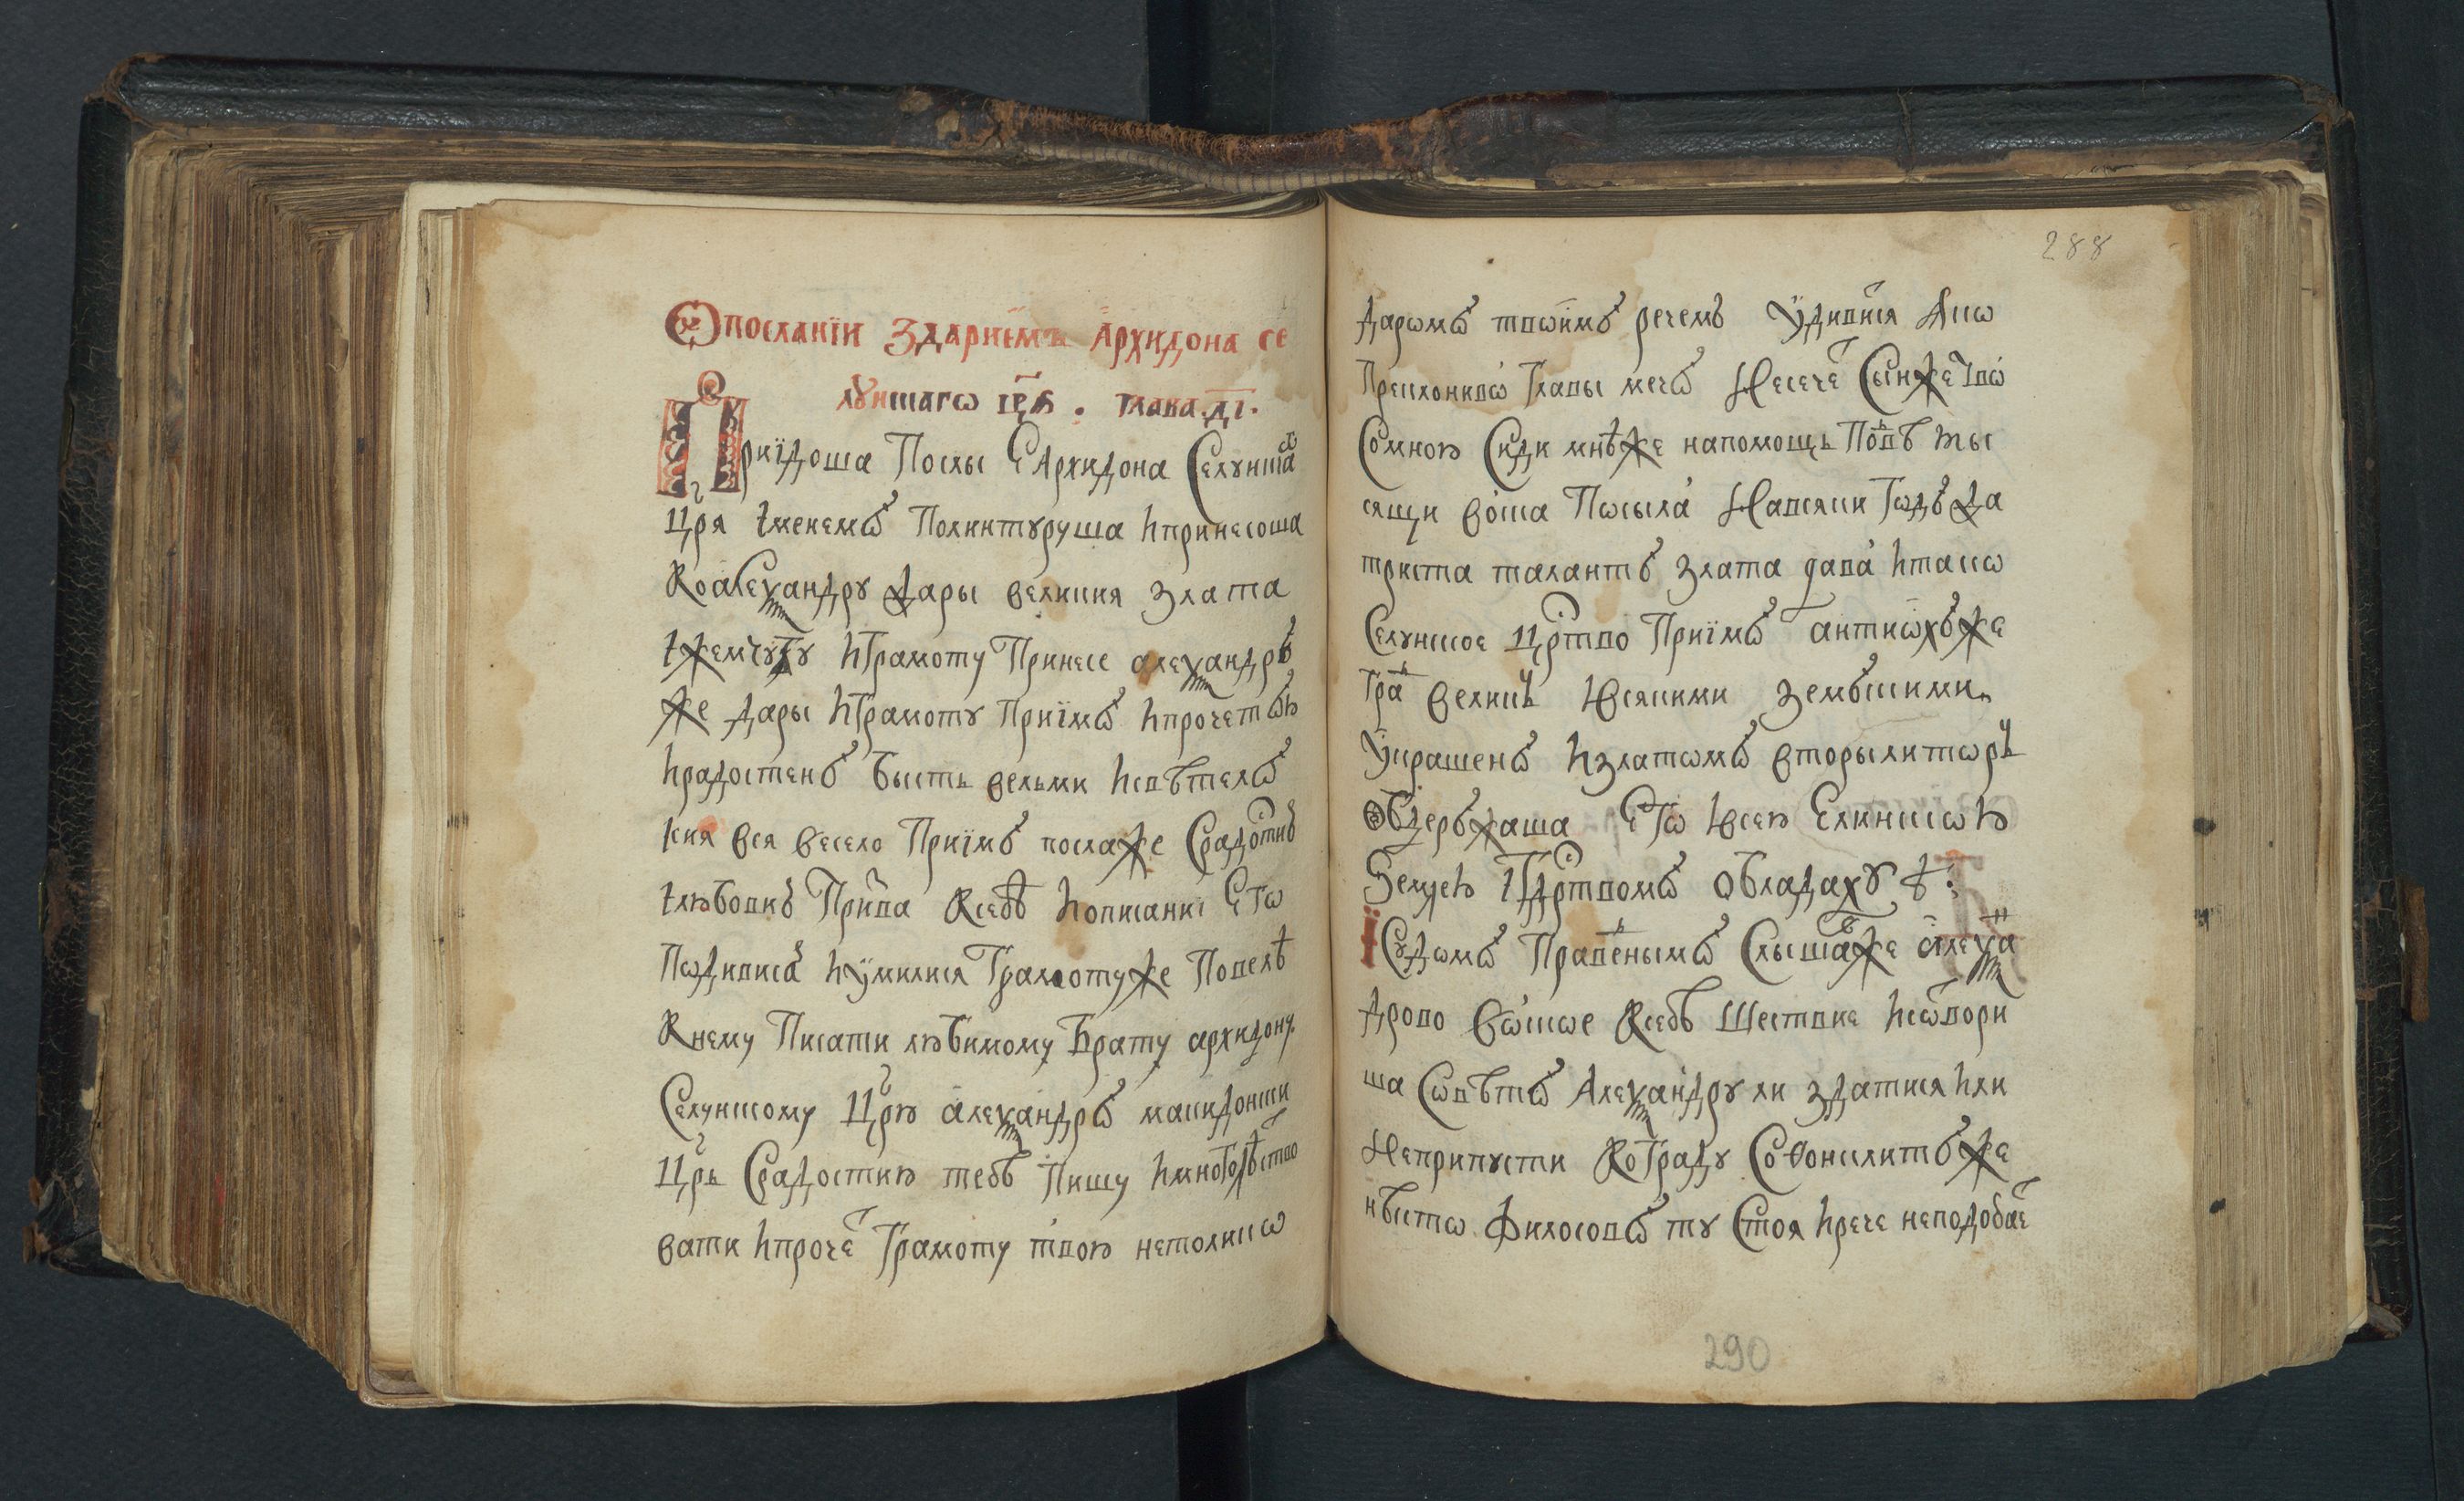 Ѿпослании Здарнїемъ Архидона се
лꙋнскаго цр҃ѧ . глава.д҃і.
Приїдоша Послы ѿ Архидона Селꙋнска
Црѧ Именемъ Поликтꙋруша Ипринесоша
Коалеѯандрꙋ Дары великиѧ Злата
Ижемчꙋгꙋ Играмоту Принесе алеѯандръ
же дары Играмотꙋ Приїмъ Ипрочетъю
Ирадостенъ бысть вельми Исвѣтелъ
киѧ всѧ весело Приїмъ посла же Срадостию
Илюбовию Призва Ксебѣ Иописании Его
Подивисѧ Иꙋмилисѧ Грамотуже Повелѣ
Кнему Писати любимому Брату архидону
Селунскому Црю алеѯандръ макидонски
Црь Срадостию тебѣ Пишу Имноголѣтство
вати Ипроче Грамоту твою нетолико
288
даромъ твоимъ речемъ Ꙋдивисѧ Яко
Преклонивъ Главы мечъ Несече Сынже Твои
Сомною Сиди мнѣже напомощь Повѣ ты
сѧщи воиска Посыла Навсѧки Годъ Да
триста талантъ Злата дава Итако
Селꙋнское Цртво Приїмъ антиѡхъже
градъ великъ Ивсѧкими земьскими
Ꙋкрашенъ Излатомъ вторы
Ѡбдержаша Его Ивсею Елинскою
Землею Игдрствомъ ѡбладахꙋ
Исꙋдомъ Праведнымъ Слышавже алеѯа
дрово воиское Ксебѣ Шествие Исотвори
ша Совѣтъ Алеѯандрꙋ ли здатисѧ Или
Неприпꙋсти Кограду Софонилитъже
нѣкто Философъ тꙋ Стоѧ Ирече неподобае
290